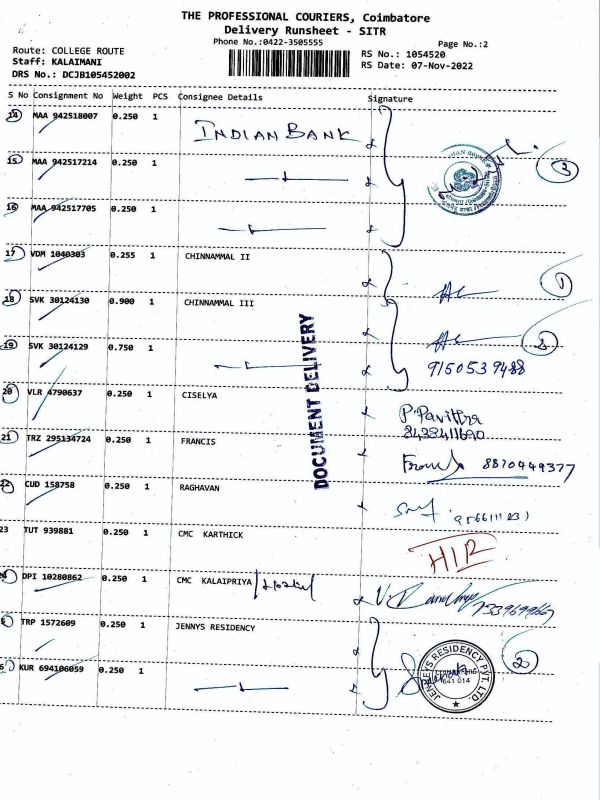 THE PROFESSIONAL COURIERS, Coimbatore
Delivery Runsheet - SITR
Phone No.:0422-3505555
Page No.:2
Route: COLLEGE ROUTE
Staff: KALAIMANI
DRS No.: DCJB105452002
RS No.: 1054520
RS Date: 07-Nov-2022
S No Consignment No Weight PCS Consignee Details Signature
14 MAA 942518007 0.250 1 INDIAN BANK
15 MAA 942517214 0.250 1
3
16 MAA 942517705 0.250 1
17 VDM 1040303 0.255 1 CHINNAMMAL II
1
18 SVK 30124130 0.900 1 CHINNAMMAL III
2
19 SVK 30124129 0.750 1
9150539488
20 VLR 4790637 0.250 1 CISELYA P. Pavithra
8438411690
21 TRZ 295134724 0.250 1 FRANCIS
8870449377
22 CUD 158758 0.250 1 RAGHAVAN
23 TUT 939881 0.250 1 CMC KARTHICK
HIR
DPI 10280862 0.250 1 CMC KALAIPRIYA
TRP 1572609 0.250 1 JENNYS RESIDENCY
2
KUR 694106059 0.250 1
JENNEYS RESIDENCY PVT. LTD.
641 014
DOCUMENT DELIVERY